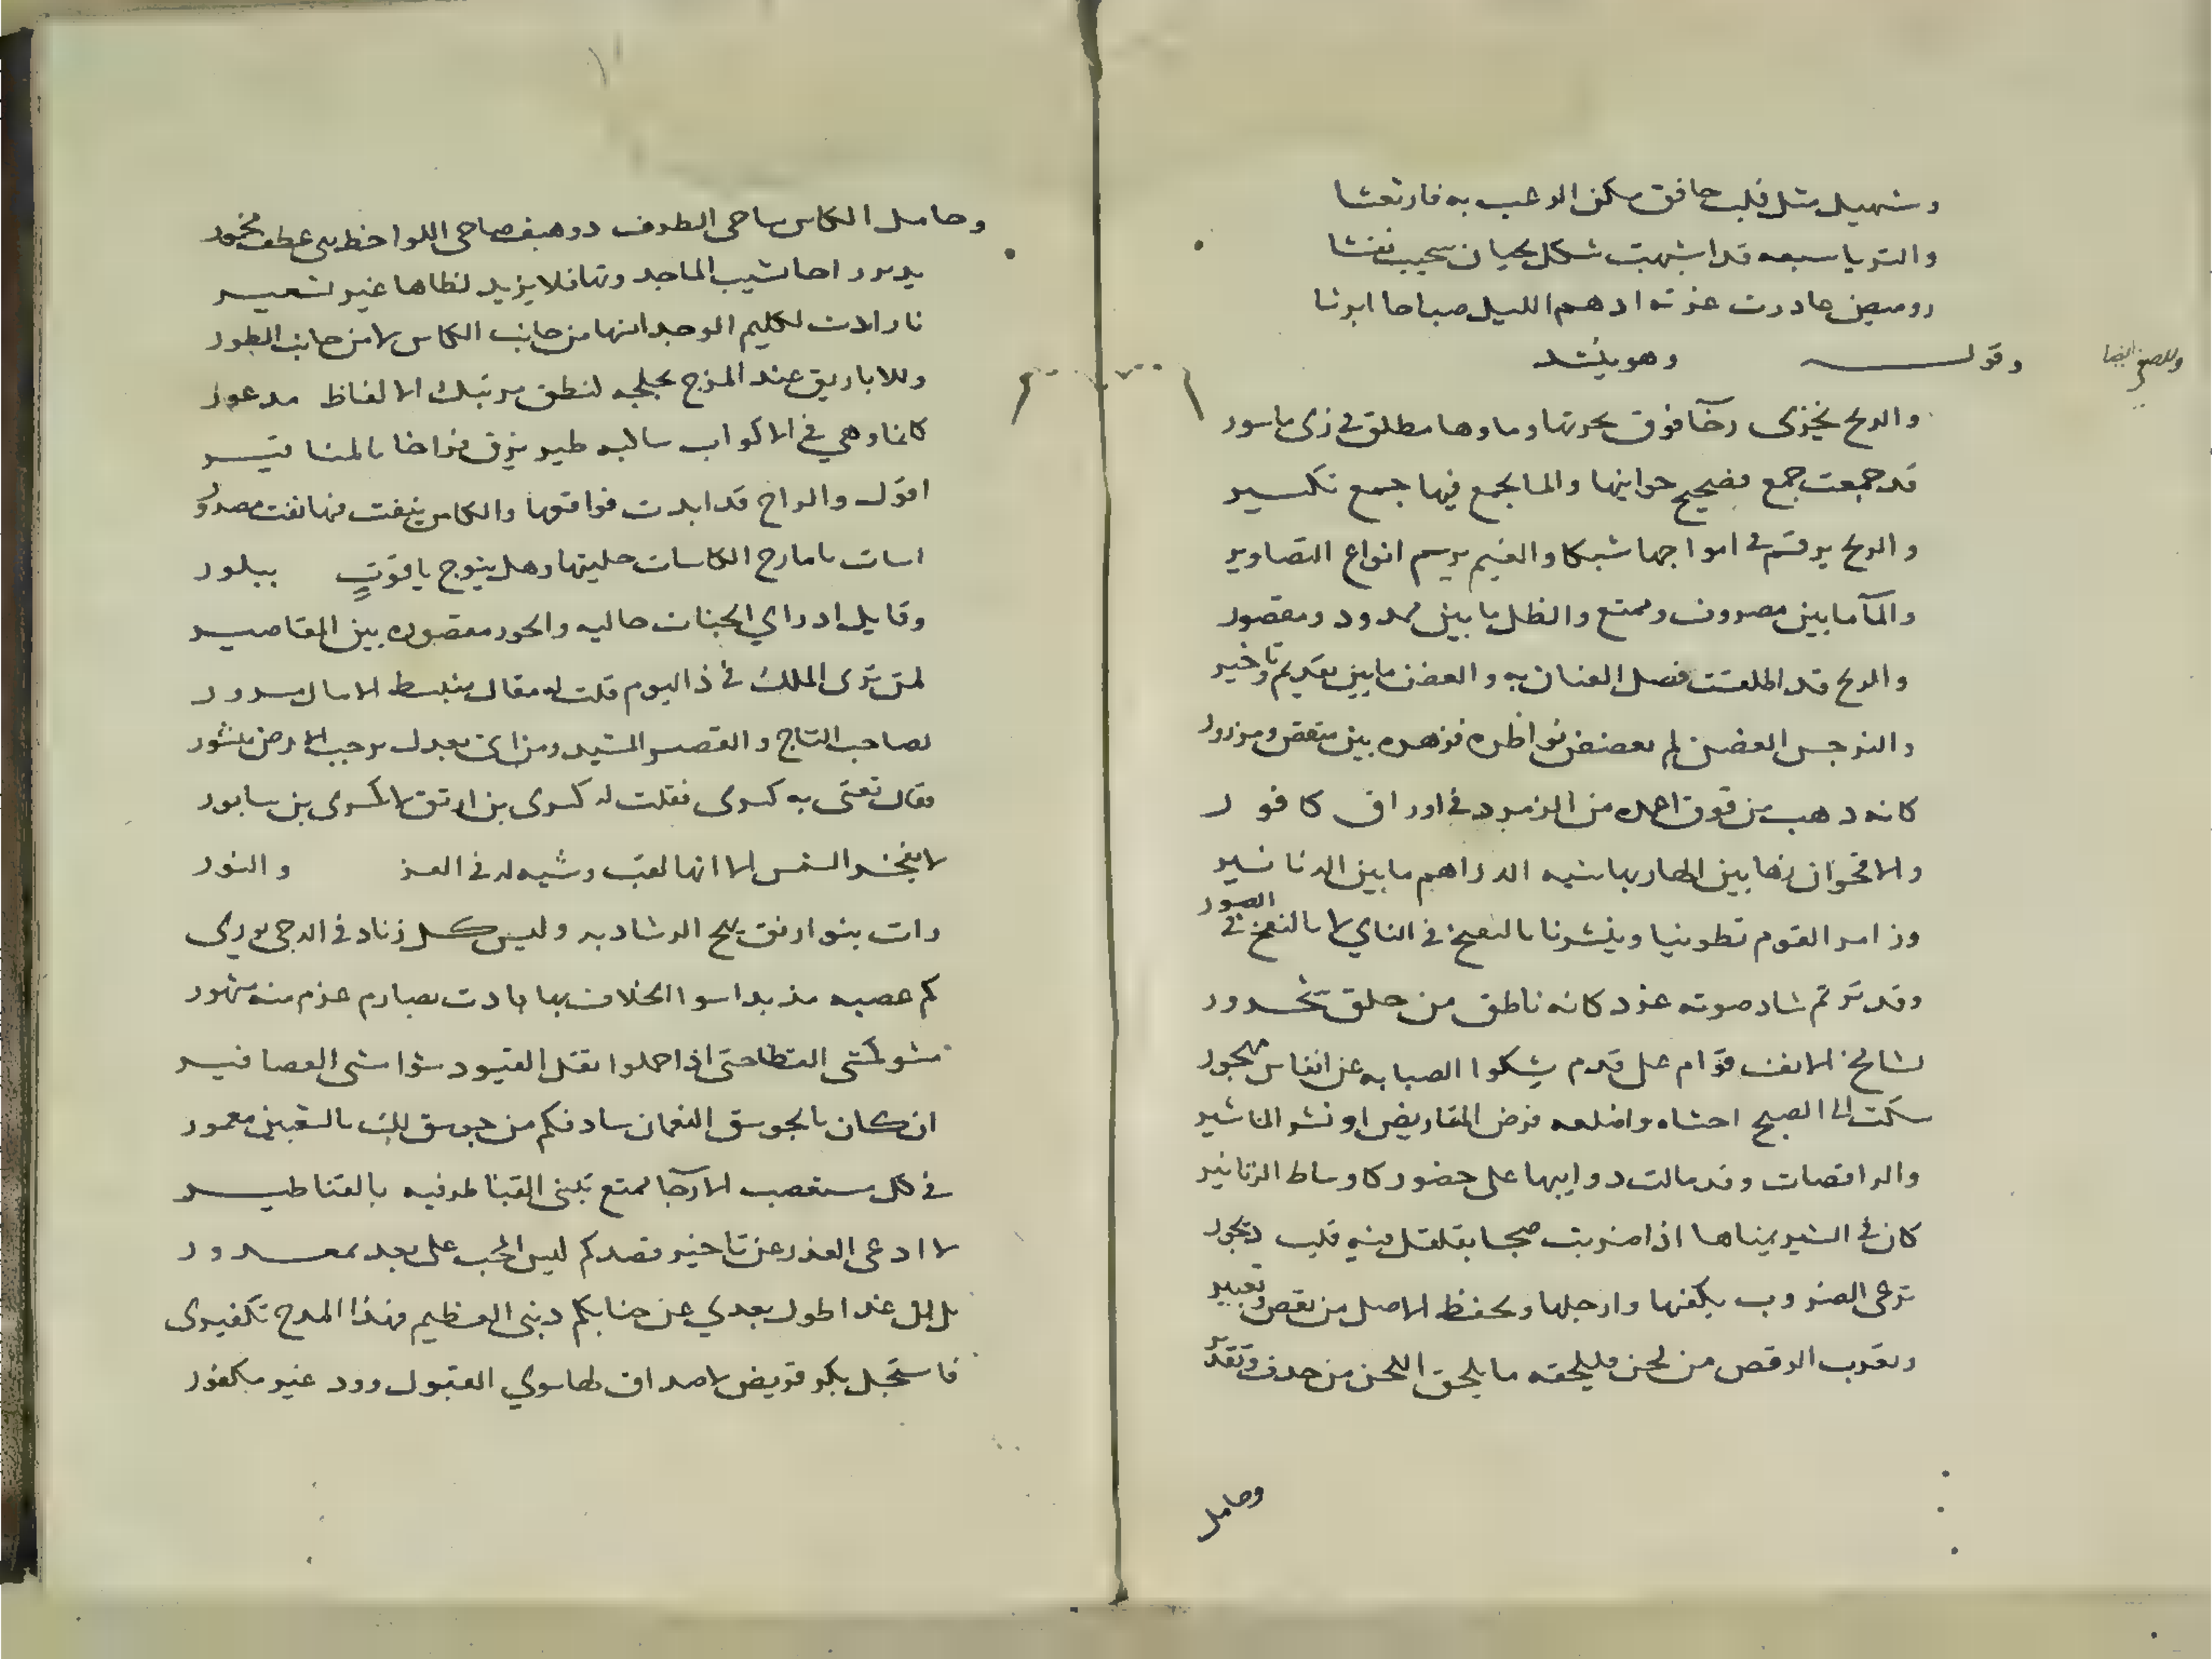 وسهيل مثل قلب خافق سكن الرعب به فارتعشا
والتريا سبعه قد اشبهت شكل لحيان نعشا
وميض غادرت غرته ادهم الليل صباحا ابرشا
وقولــــه وهو ينشد
وللصفي ايضا
والريح تجزى رخآ فوق بحرتها وماوها مطلق في زى ماسور
قد جمعت جمع تصحيح جوانبها والما يجمع فيها جمع تكسير
والريح يرقم في امواجها شبكا والغيم يرسم انواع التصاوير
والمآ ما بين مصروف وممتنع والظل ما بين ممدود ومقصور
والريح قد اطلقت فضل العنان به والغصن ما بين تقديم وتاخير
والنرجس الغض لم تغضض نواظره فزهره بين منقض ومزرور
كانه ذهب من فوق اعمده من الزمرد في اوراق كافور
والاقحوان زها بين الطهاريها شبه الدراهم ما بين الدنانير
وزامر القوم تطوينا وينشرنا بالنفخ في الناي لا بالنفخ في الصور
وقد ترنم شاد صوته غرد كانه ناطق من حلق شحرور
لشامخ الانف قوام على قدم يشكوا الصبابه عن انفاس مهجور
سكت الى الصبح احشاه واضلعه قرض المقاريض او نشر المناشير
والراقصات وقد مالت دوايبها على خضور كاوساط الزنانير
كان في الشيز يمناها اذا ضربت صبحا يقلقل فيه قلب ديجور
ترعى الضروب بكفها وارجلها وتحفظ الاصل من نقص وتغيير
وتعرب الرقص من لحن فيلحقه ما يلحق اللحن من حذف وتقدير
وحامل
وحامل الكاس ساجي الطرف ذو هيف صاحى اللواحظ يثنى عطف مخمور
يدير راحا تشيب الماجد وتها فلا يزيد لظاها غير تسعير
نارا لات لكليم الوجد انها من جانب الكاس لا من جانب الطور
وللاباريق عند المزج لجلجه لنطق مرتبك الالفاظ مدعور
كانها وهي في الاكواب ساكبه طير يزق فراخا بالمناقير
اقول والراح قد ابدت فواقعها والكاس ينفث منها نفث مصدور
اسات يا مازج الكاسات حليتها وهل يتوج ياقوت ببلور
وقايل اذ راي الجنات حاليه والحور مقصوره بين المقاصير
لمن ترى الملك في ذا اليوم قلت له مقال منبسط الامال مسرور
لصاحب التاج والقصر المشيد ومن اتى بعدل برحب الارض منشور
فقال تعنى به كسرى فقلت له كسرى بن ارتق لا كسرى بن سابور
لا تفخر الشمس الا انها لقب وشبه له في العز والنور
رات بنو ارتق نهج الرشاد به وليس كل زناد في الدجى يوري
كم عصبه مذ بدا سوا الخلاف بها بادت بصارم عزم منه مشهور
مشوا كمشى القطا حتى اذا حملوا ثقل القيود مشوا مشى العصافير
ان كان بالجوسق النعمان ساد فكم من جوسق لك بالشعبين معمور
في كل مستصعب الارجا ممتنع تبنى القناطر فيه بالقناطير
لا ادعى العذر عن تاخير قصدكم ليس المحب على بعد بمعذور
بل ان غدا طول بعدي عن جنابكم دنبى العظيم فهذا المدح تكفيرى
فاستجل بكر قريض لا صداق لها سوي القبول وود غير مكفور